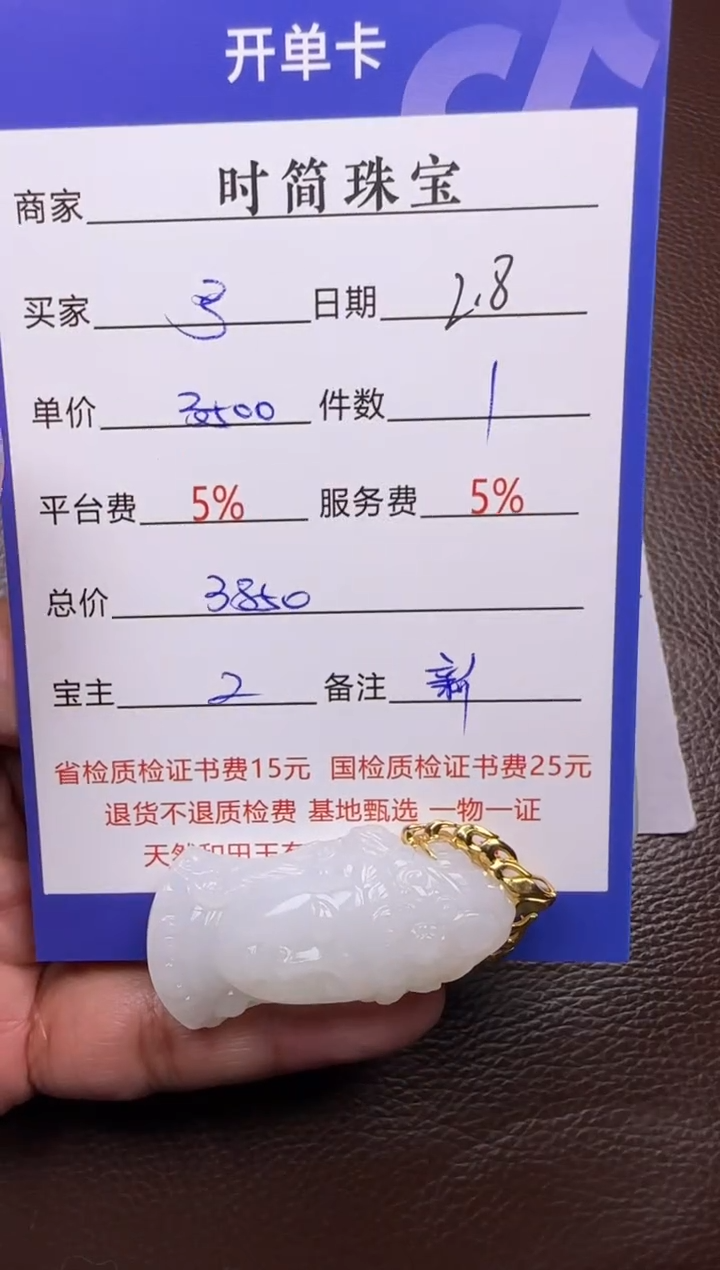 开单卡
商家 时简珠宝
买家 日期 2.8
单价 3500 件数 1
平台费 5% 服务费 5%
总价 3850
宝主 2 备注 新
省检质检证书费15元 国检质检证书费25元
退货不退质检费 基地甄选 一物一证
天然和田玉